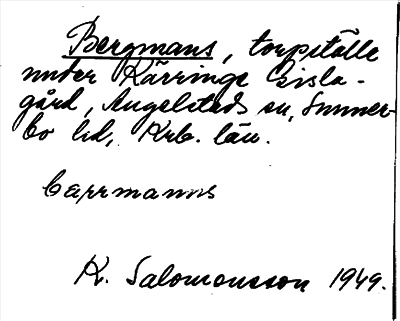 Bergmans, torpställe
under Kärringe sisla-
gård, Angelstads sn, Sunner-
bo hd, Krb. län.
bærrmanns
K. Salomonsson 1949.